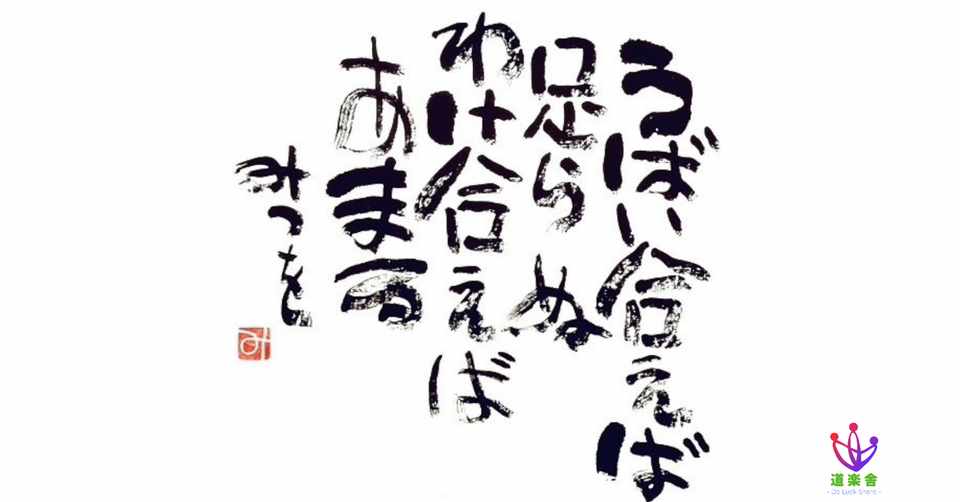 うばい合えば
足らぬ
わけ合えば
あまる
みつを
み
道楽舎